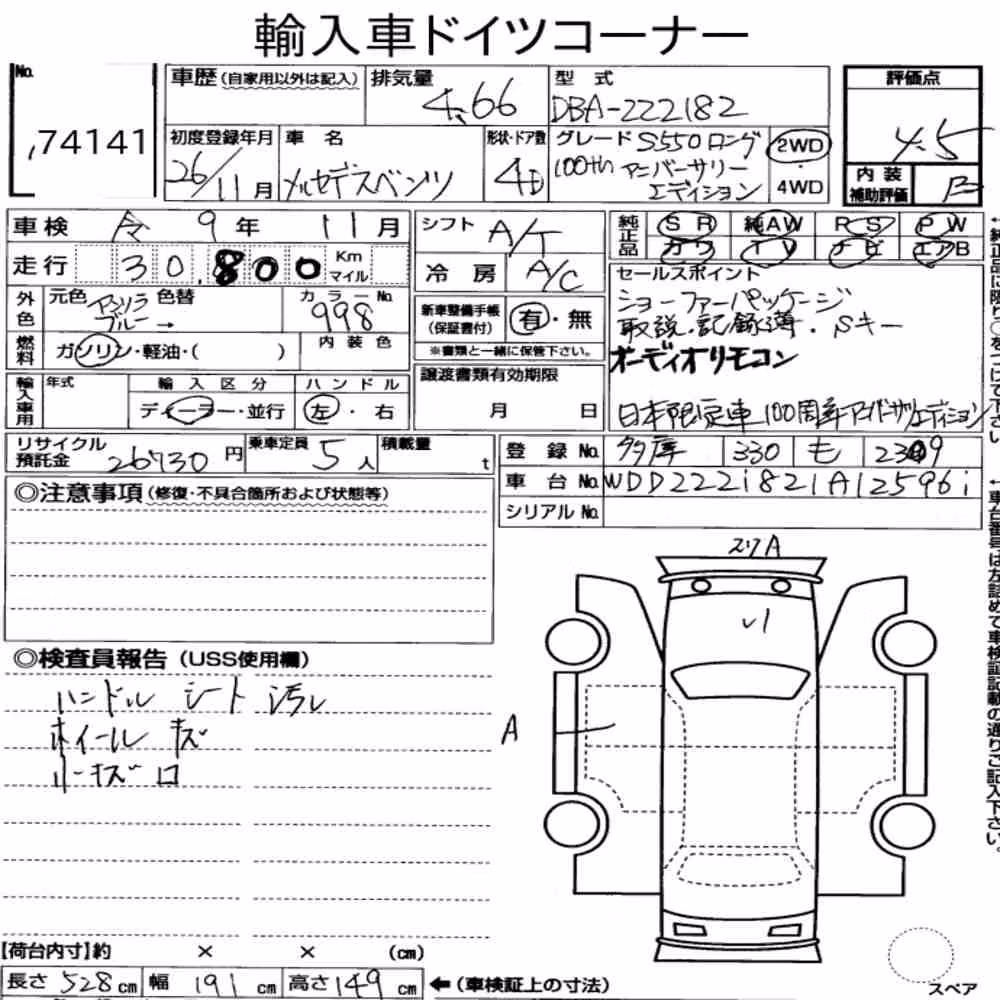 輸入車ドイツコーナー
No.
74141
車歴(自家用以外は記入)
排気量
4.66
型 式
DBA-222182
評価点
4.5
内装補助評価
B
初度登録年月
26/11月
車 名
メルセデスベンツ
形状・ドア数
4D
グレード S550 ロング
100th アニバーサリー
エディション
2WD
・
4WD
車検 令 9年 11月
走行 30,800 Km マイル
シフト A/T
冷房 A/C
純正品
SR 純AW PS PW
カワ TV ナビ エアB
外色
元色 アンソラ ブルー→
色替
カラーNo.
998
燃料
ガソリン・軽油・( )
内装色
新車整備手帳
(保証書付)
有・無
※書類と一緒に保管下さい。
セールスポイント
ショーファーパッケージ
取説.記録簿.Sキー
オーディオリモコン
日本限定車 100周年アニバーサリーエディション
輸入車用
年式
輸入区分
ディーラー・並行
ハンドル
左・右
譲渡書類有効期限
月 日
リサイクル
預託金
26730円
乗車定員 5人
積載量 t
登録No. 多摩 330 も 2309
車台No. WDD2221821A125961
シリアルNo.
◎注意事項(修復・不具合箇所および状態等)
◎検査員報告(USS使用欄)
ハンドル シート 汚レ
ホイール キズ
A
【荷台内寸】約 × × (cm)
長さ 528cm 幅 191cm 高さ 149cm
←(車検証上の寸法)
スペア